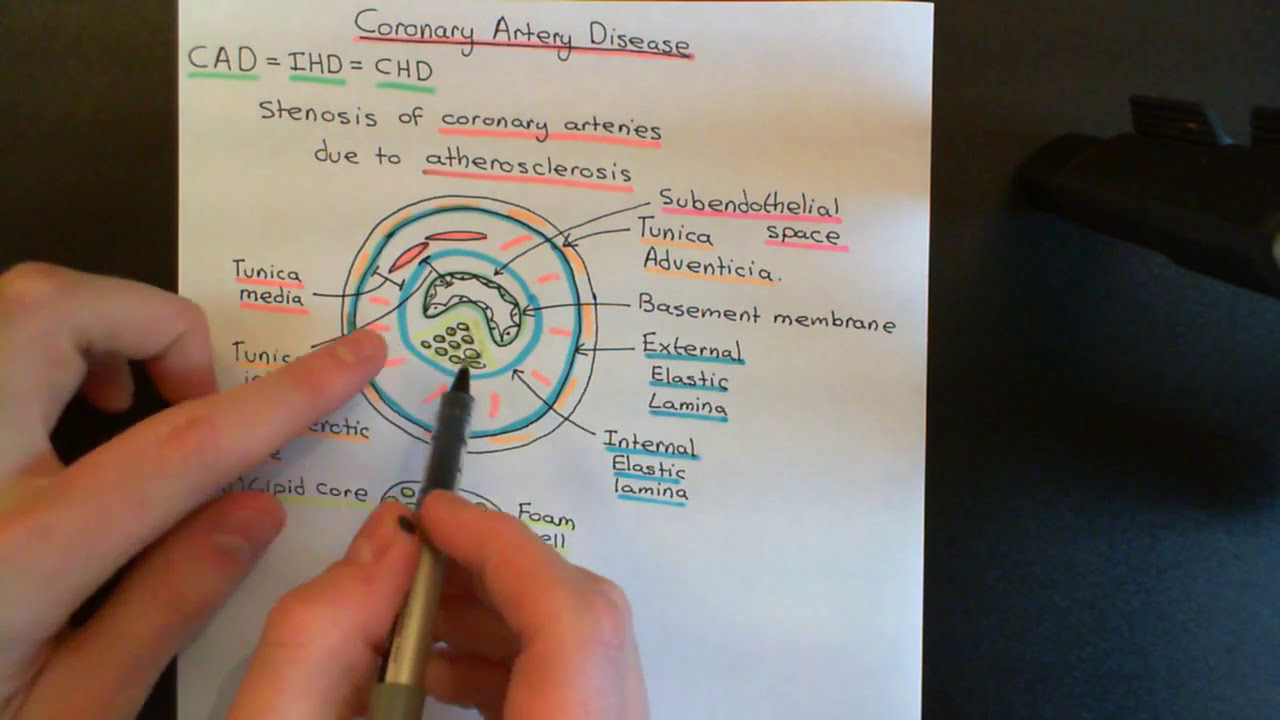 Coronary Artery Disease
CAD = IHD = CHD
Stenosis of coronary arteries
due to atherosclerosis
Subendothelial
space
Tunica
Adventicia.
Tunica
media
Basement membrane
External
Elastic
Lamina
Internal
Elastic
lamina
Lipid Core
Foam